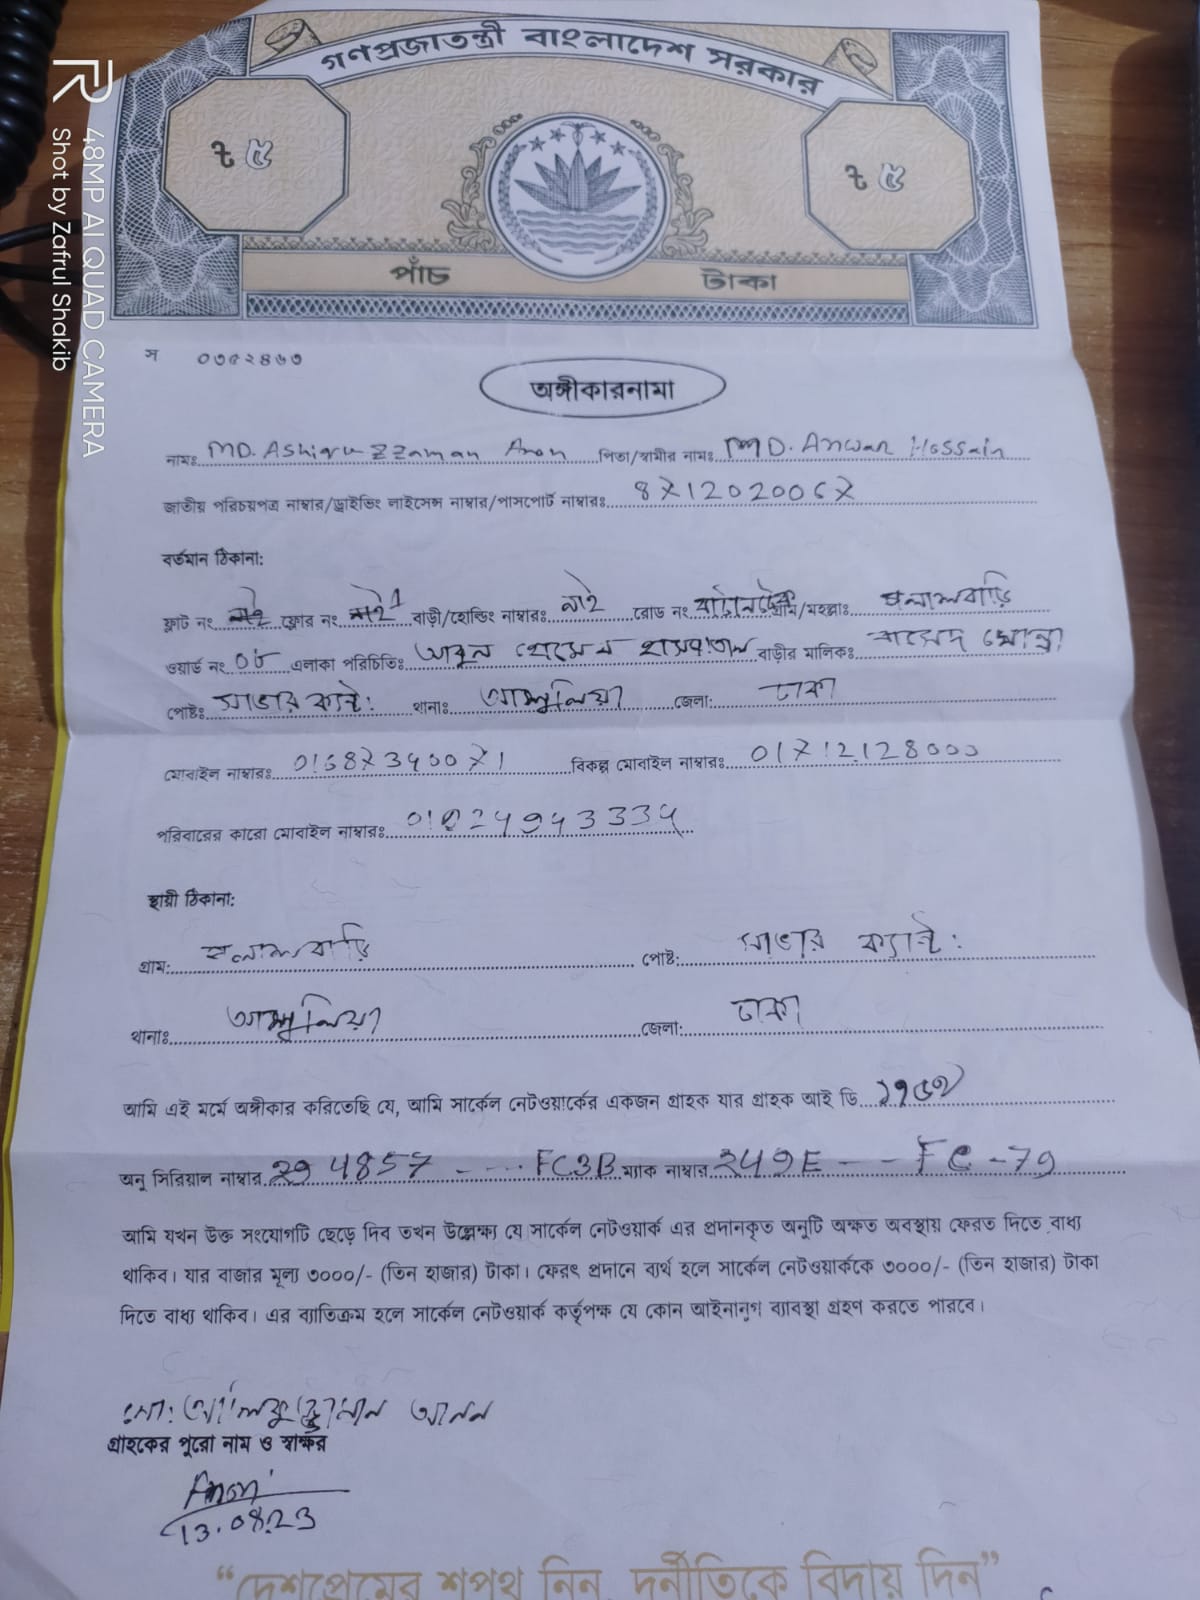 গণপ্রজাতন্ত্রী বাংলাদেশ সরকার
৳ ৫ ৳ ৫
পাঁচ টাকা
স ০৩৫২৪৬৩
অঙ্গীকারনামা
নামঃ MD. Ashiquzzaman Anon পিতা/স্বামীর নামঃ MD. Anwar Hossain
জাতীয় পরিচয়পত্র নাম্বার/ড্রাইভিং লাইসেন্স নাম্বার/পাসপোর্ট নাম্বারঃ 8712020067
বর্তমান ঠিকানা:
ফ্লাট নং ফ্লোর নং বাড়ী/হোল্ডিং নাম্বারঃ নাই রোড নং গ্রাম/মহল্লাঃ
ওয়ার্ড নং এলাকা পরিচিতিঃ আবুল হোসেন হাসপাতাল বাড়ীর মালিকঃ
পোষ্টঃ সাভার ক্যান্ট: থানাঃ আশুলিয়া জেলা: ঢাকা
মোবাইল নাম্বারঃ বিকল্প মোবাইল নাম্বারঃ 01712128000
পরিবারের কারো মোবাইল নাম্বারঃ
স্থায়ী ঠিকানা:
গ্রাম: পোষ্ট: সাভার ক্যান্ট:
থানাঃ আশুলিয়া জেলা: ঢাকা
আমি এই মর্মে অঙ্গীকার করিতেছি যে, আমি সার্কেল নেটওয়ার্কের একজন গ্রাহক যার গ্রাহক আই ডি
অনু সিরিয়াল নাম্বার 4857 ---- FC3B ম্যাক নাম্বার 249E -- FC-79
আমি যখন উক্ত সংযোগটি ছেড়ে দিব তখন উল্লেক্ষ্য যে সার্কেল নেটওয়ার্ক এর প্রদানকৃত অনুটি অক্ষত অবস্থায় ফেরত দিতে বাধ্য
থাকিব। যার বাজার মূল্য ৩০০০/- (তিন হাজার) টাকা। ফেরৎ প্রদানে ব্যর্থ হলে সার্কেল নেটওয়ার্ককে ৩০০০/- (তিন হাজার) টাকা
দিতে বাধ্য থাকিব। এর ব্যাতিক্রম হলে সার্কেল নেটওয়ার্ক কর্তৃপক্ষ যে কোন আইনানুগ ব্যাবস্থা গ্রহণ করতে পারবে।
মো: আশিকুজ্জামান আনন
গ্রাহকের পুরো নাম ও স্বাক্ষর
Anon
13.08.23
“দেশপ্রেমের শপথ নিন, দুর্নীতিকে বিদায় দিন”
48MP AI QUAD CAMERA
Shot by Zafrul Shakib